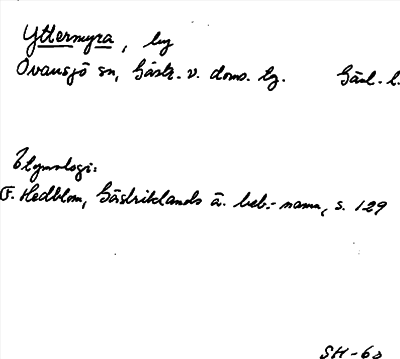 Yttermyra, by
Ovansjö sn, Gästr. v. doms. tg. Gästr. l.
Etymologi:
F. Hedblom, Gästriklands ä. beb.-namn, s. 129
SH-60